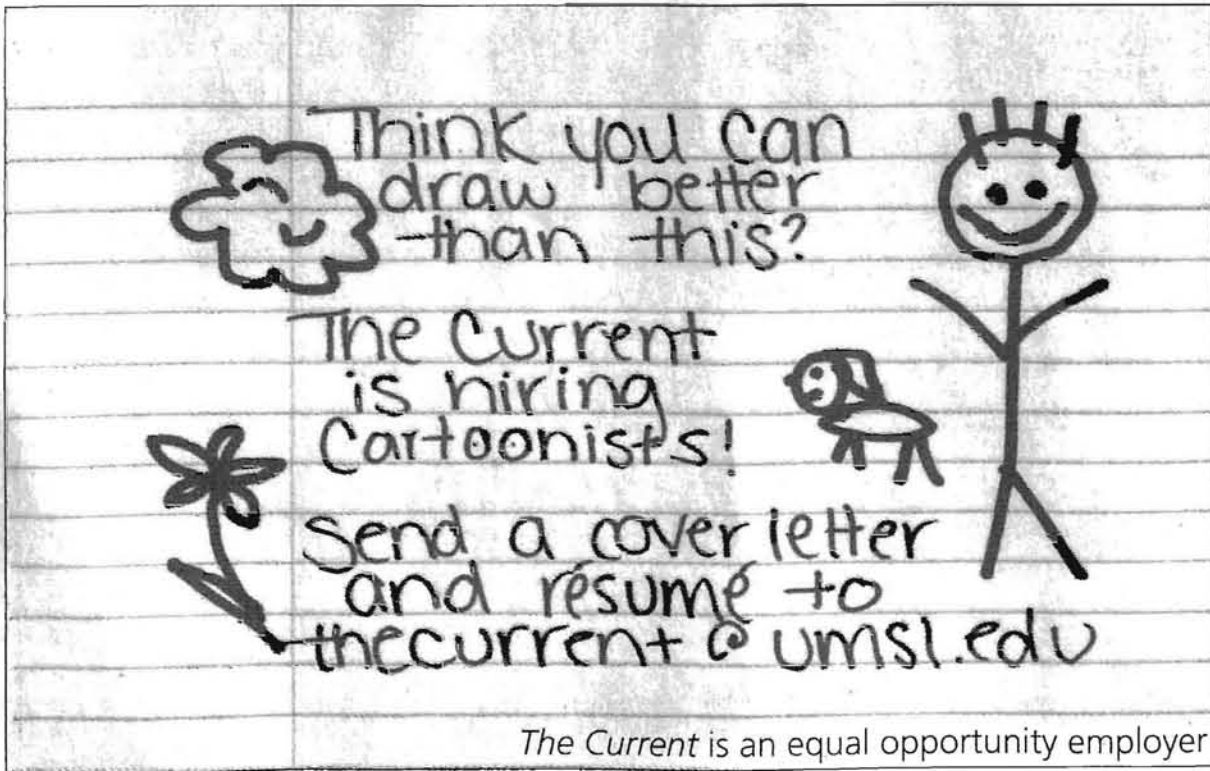 Think you can
draw better
than this?
The Current
is hiring
Cartoonists!
Send a cover letter
and résumé to
thecurrent@umsl.edu
The Current is an equal opportunity employer